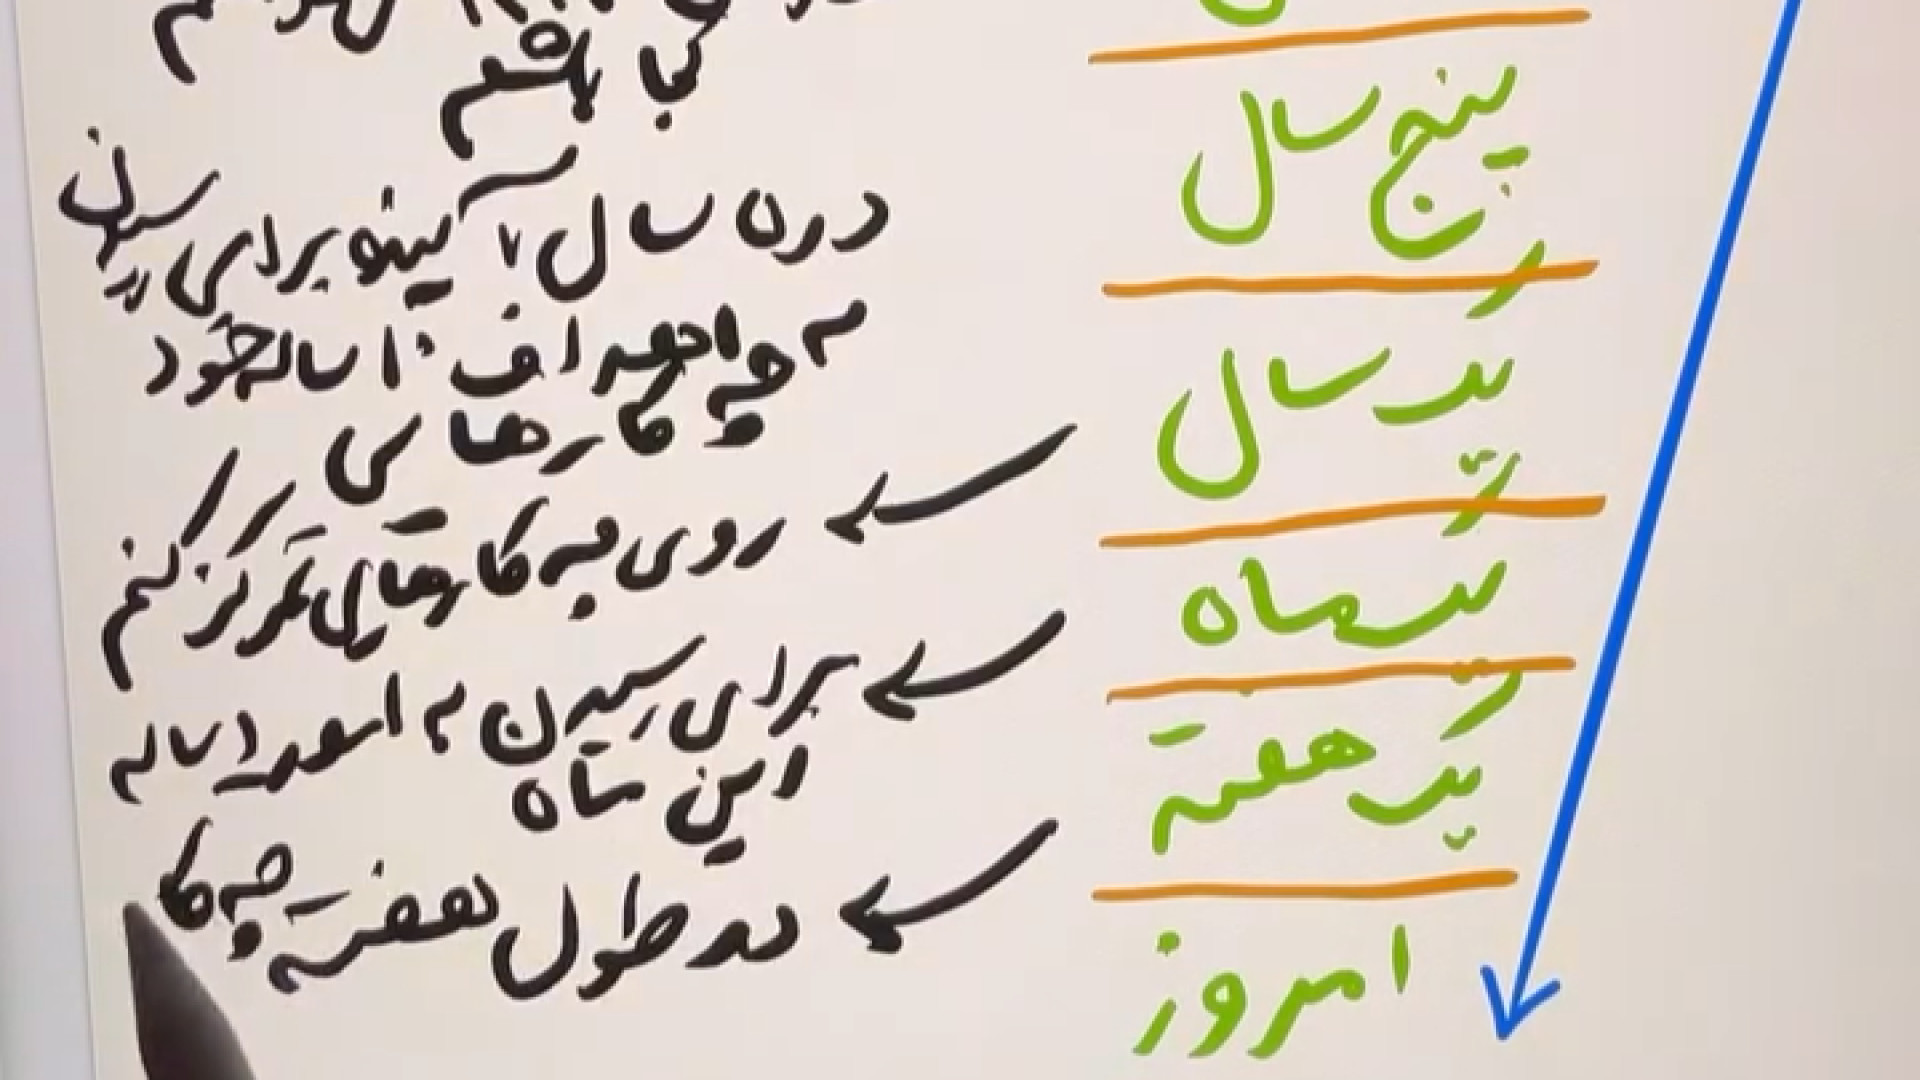 کجا باشم
پنج سال
در ۵ سال آینده برای رسیدن
به اهداف ۱۰ ساله خود
چه کارهایی
یک سال
روی چه کارهایی تمرکز کنم
یک ماه
برای رسیدن به اهداف ۱ ساله
این ماه
یک هفته
در طول هفته چه کا
امروز